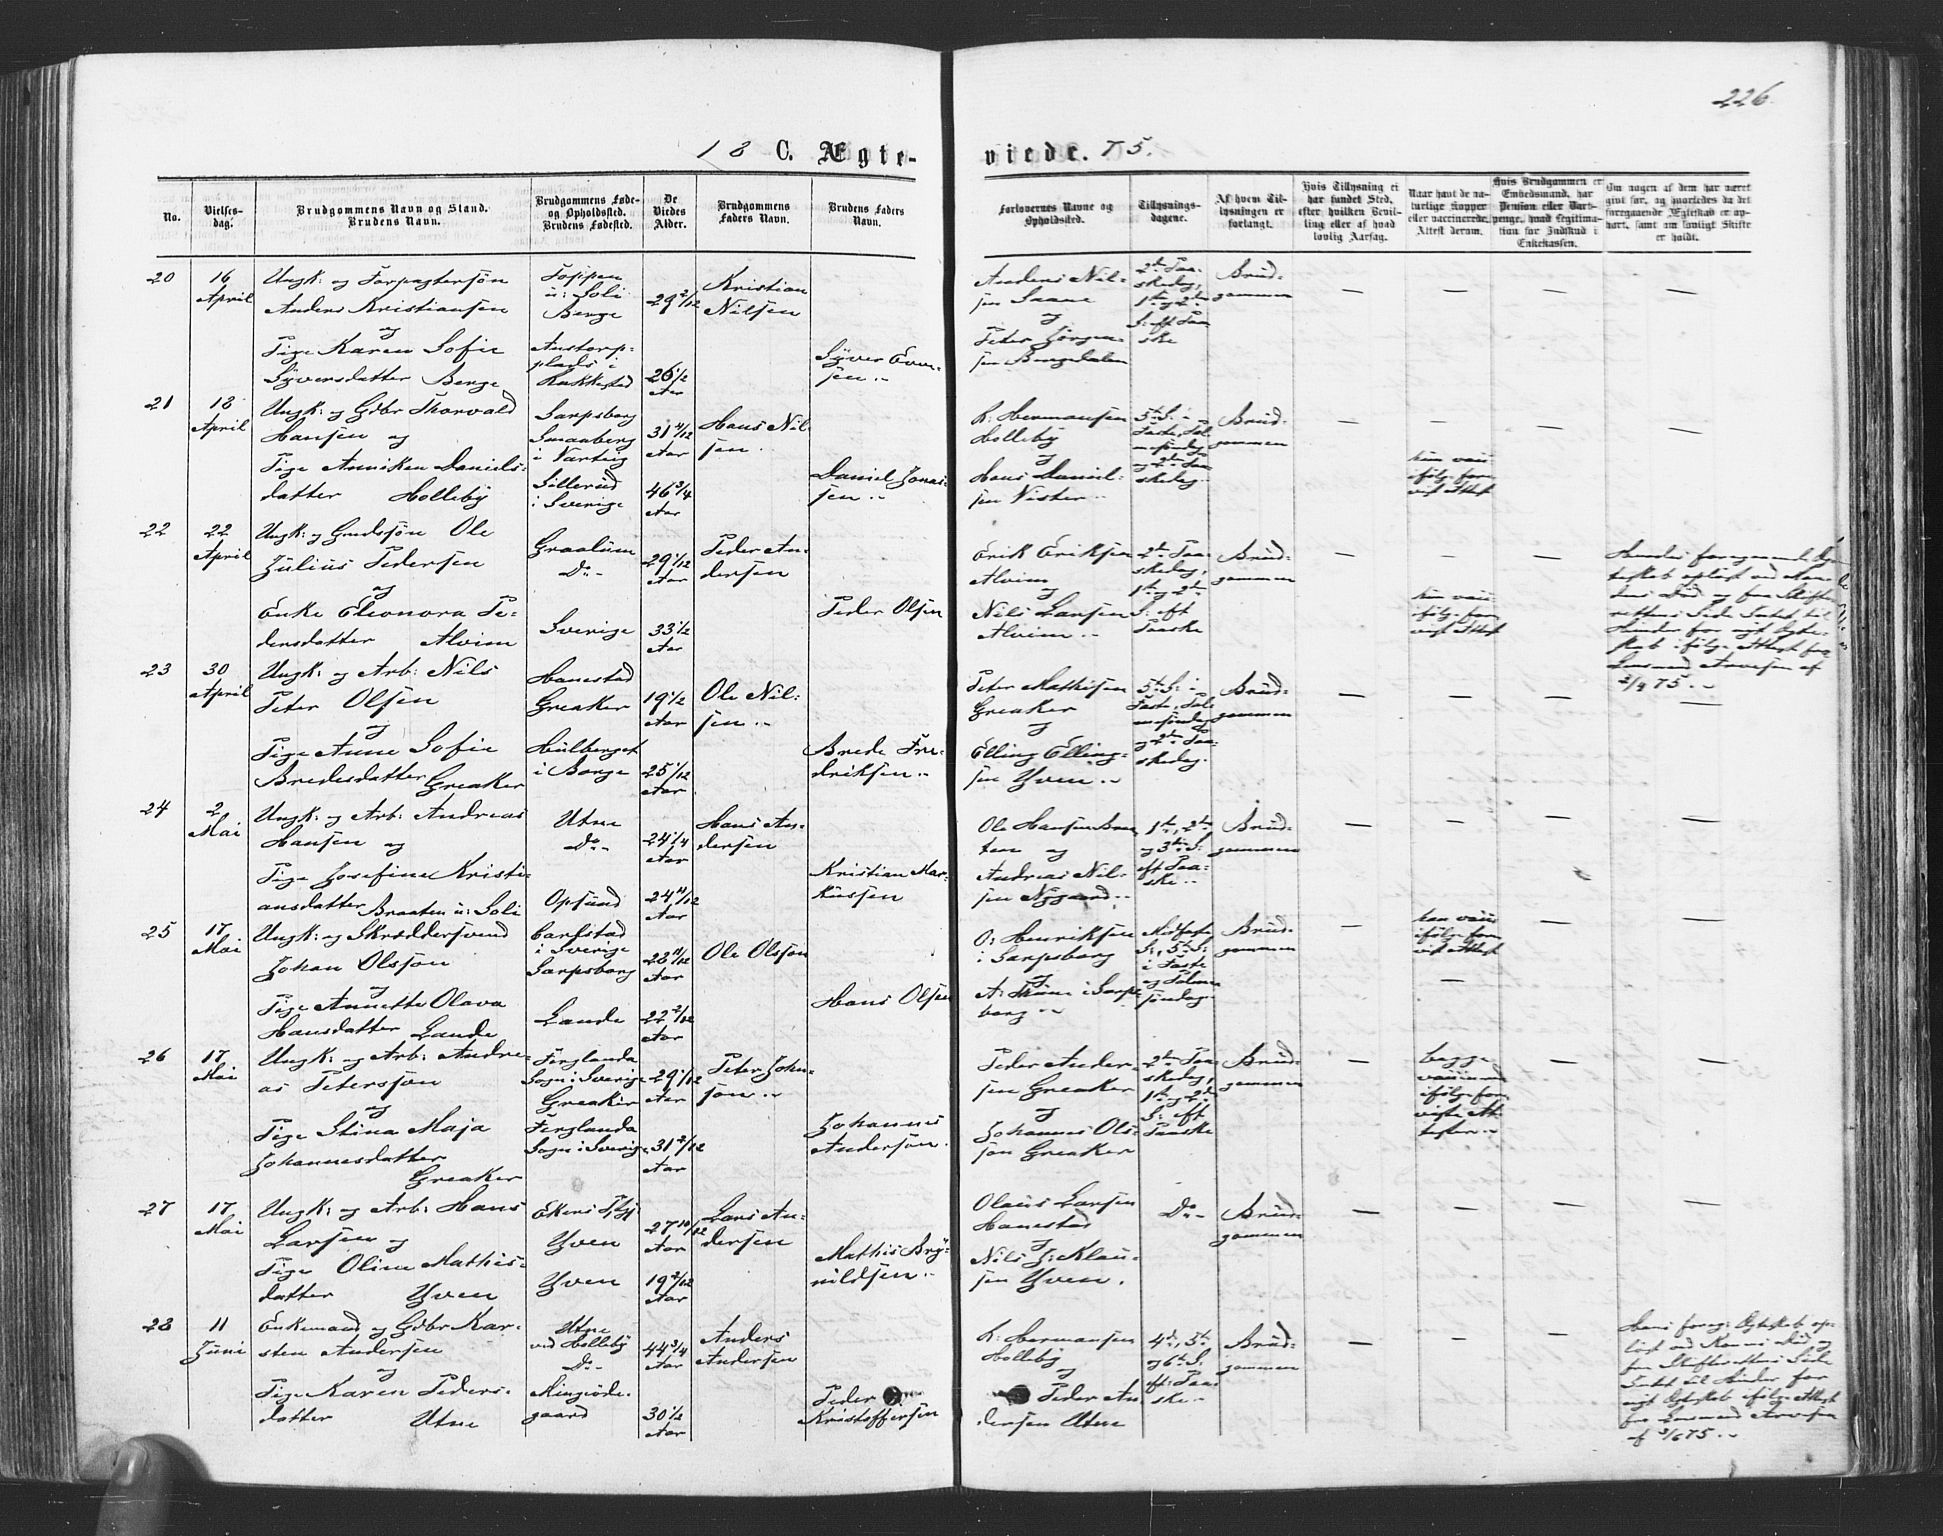 226.
18 C. Ægte-
viede. 75.
No.
Vielses-
dag.
Brudgommens Navn og Stand.
Brudens Navn.
Brudgommens Føde-
og Opholdssted.
Brudens Fødested.
De
Viedes
Alder.
Brudgommens
Faders Navn.
Brudens Faders
Navn.
Forlovernes Navne og
Opholdssted.
Tillysnings-
dagene.
Af hvem Til-
lysningen er
forlangt.
Hvis Tillysning ei
har fundet Sted,
efter hvilken Bevil-
ling eller af hvad
lovlig Aarsag.
Naar havt de na-
turlige Kopper
eller vaccinerede.
Attest derom.
Hvis Brudgommen er
Embedsmand, har
Pension eller Vart-
penge, hvad Legitima-
tion for Indskud i
Enkekassen.
Om nogen af dem har været
givt før, og hvorledes da det
foregaaende Ægteskab er op-
hørt, samt om lovligt Skifte
er holdt.
20
16
April
Ungk: og Forpagtersøn
Anders Kristiansen
og
Pige Karen Sofie
Syversdatter Berge
Toppen
u: Soli
Berge
Austorp-
plads i
Rakkestad
29 2/12
26 1/2
Aar
Kristian
Nilsen
Syver Even-
sen
Anders Nil-
sen Saane
og
Peter Jørgen-
sen Bergedalen
2den Paa-
skedag,
1ste og 2den
S: eft Paa
ske
Brud-
gommen
21
18
April
Ungk: og Gdbr Thorvald
Hansen og
Pige Anniken Daniels-
datter Holleby
Sarpsborg
Smaaberg
i Varteig
Sillerud
i Sverige
31 4/12
Aar
46 3/4
Aar
Hans Nil-
sen
Daniel Jonas-
sen
R: Hermansen
Holleby
og
Hans Daniel-
sen Nister
5te S: i
Faste, Pal-
mesøndag
og 2den Paa
skedag
Brud-
gommen
hun vaci
ifølge fore
vist Attest
22
22
April
Ungk: og Grudssøn Ole
Julius Pedersen
og
Enke Eleonora Pe-
dersdatter Alvim
Graalum
Do
Sverige
29 1/12
Aar
33 1/2
Aar
Peder An-
dersen
Peder Olsen
Erik Eriksen
Alvim
og
Nils Larsen
Alvim
2den Paa-
skedag,
1ste og 2den
S: eft
Paaske
Brud-
gommen
hun vaci
ifølge fore
vist Attest
Hendes foregaaende Æg-
teskab opløst ved Man-
dens Død og fra Skifte-
rettens Side Intet til
Hinder for nyt Ægte-
skab ifølge Attest fra
Lensmand Arvesen af
2/4 75.
23
30
April
Ungk: og Arb: Nils
Peter Olsen
og
Pige Anne Sofie
Bredesdatter Greaker
Hanestad
Greaker
Hulberget
i Borge
19 1/2
Aar
25 1/12
Aar
Ole Nil-
sen
Brede Fre-
driksen
Peter Mathisen
Greaker
og
Elling Elling-
sen Yven
5te S: i
Faste, Pal
mesøndag
og 2den Paa-
skedag
Brud-
gommen
24
2
Mai
Ungk: og Arb: Andreas
Hansen og
Pige Josefine Kristi-
ansdatter Braaten u: Soli
Utne
Do
Opsund
24 1/4
Aar
24 11/12
Aar
Hans An-
dersen
Kristian Mar-
kussen
Ole Hansen Braa
ten og
Andreas Nil-
sen Nygaard
1ste, 2den
og 3die S:
eft Paa-
ske
Brud-
gommen
25
17
Mai
Ungk: og Skræddersvend
Johan Olsson
og
Pige Annette Olava
Hansdatter Lande
Carlstad
i Sverige
Sarpsborg
Lande
28 11/12
Aar
22 2/12
Aar
Ole Olsson
Hans Olsen
O: Henriksen
i Sarpsborg
og
A: Thune i Sarps
borg
Midfaste
S:, 5te S:
i Faste
og Palme
søndag
Brud-
gommen
han vaci
ifølge fore
vist Attest
26
17
Mai
Ungk: og Arb: Andre-
as Petersson
og
Pige Stina Maja
Johannesdatter
Greaker
Ferglanda
Sogn i Sverige
Greaker
Ferglanda
Sogn i Sverige
29 1/12
Aar
31 2/12
Aar
Peter Johns-
son
Johannes
Andersson
Peder Ander-
sen Greaker
og
Johannes Ols-
son Greaker
2den Paa-
skedag,
1ste og 2den
S: eft
Paaske
Brud-
gommen
begge
vaccinered
ifølge fore
viste At-
tester
27
17
Mai
Ungk: og Arb: Hans
Larsen og
Pige Oline Mathis-
datter Yven
Yven
Yven
27 10/12
Aar
19 2/12
Aar
Lars An-
dersen
Mathis Bry-
nildsen
Olaus Larsen
Hanestad
og
Nils J: Klau-
sen Yven.
Do
Brud-
gommen
28
11
Juni
Enkemand og Gdbr Kar-
sten Andersen
og
Pige Karen Peders-
datter Utne
Utne
ved Holleby
Do
Mingsøde-
gaard
44 3/4
Aar
30 1/2
Aar
Anders
Andersen
Peder
Kristoffersen
R: Hermansen
Holleby
og
Peder An
dersen Utne
4de, 5te
og 6te S:
eft: Paa
ske
Brud-
gommen
Hans foreg: Ægteskab op-
løst ved Konens Død og
fra Skifterettens Side
Intet til Hinder for
nyt Ægteskab ifølge Attest
fra Lensmand Arvesen
af 3/6 75.